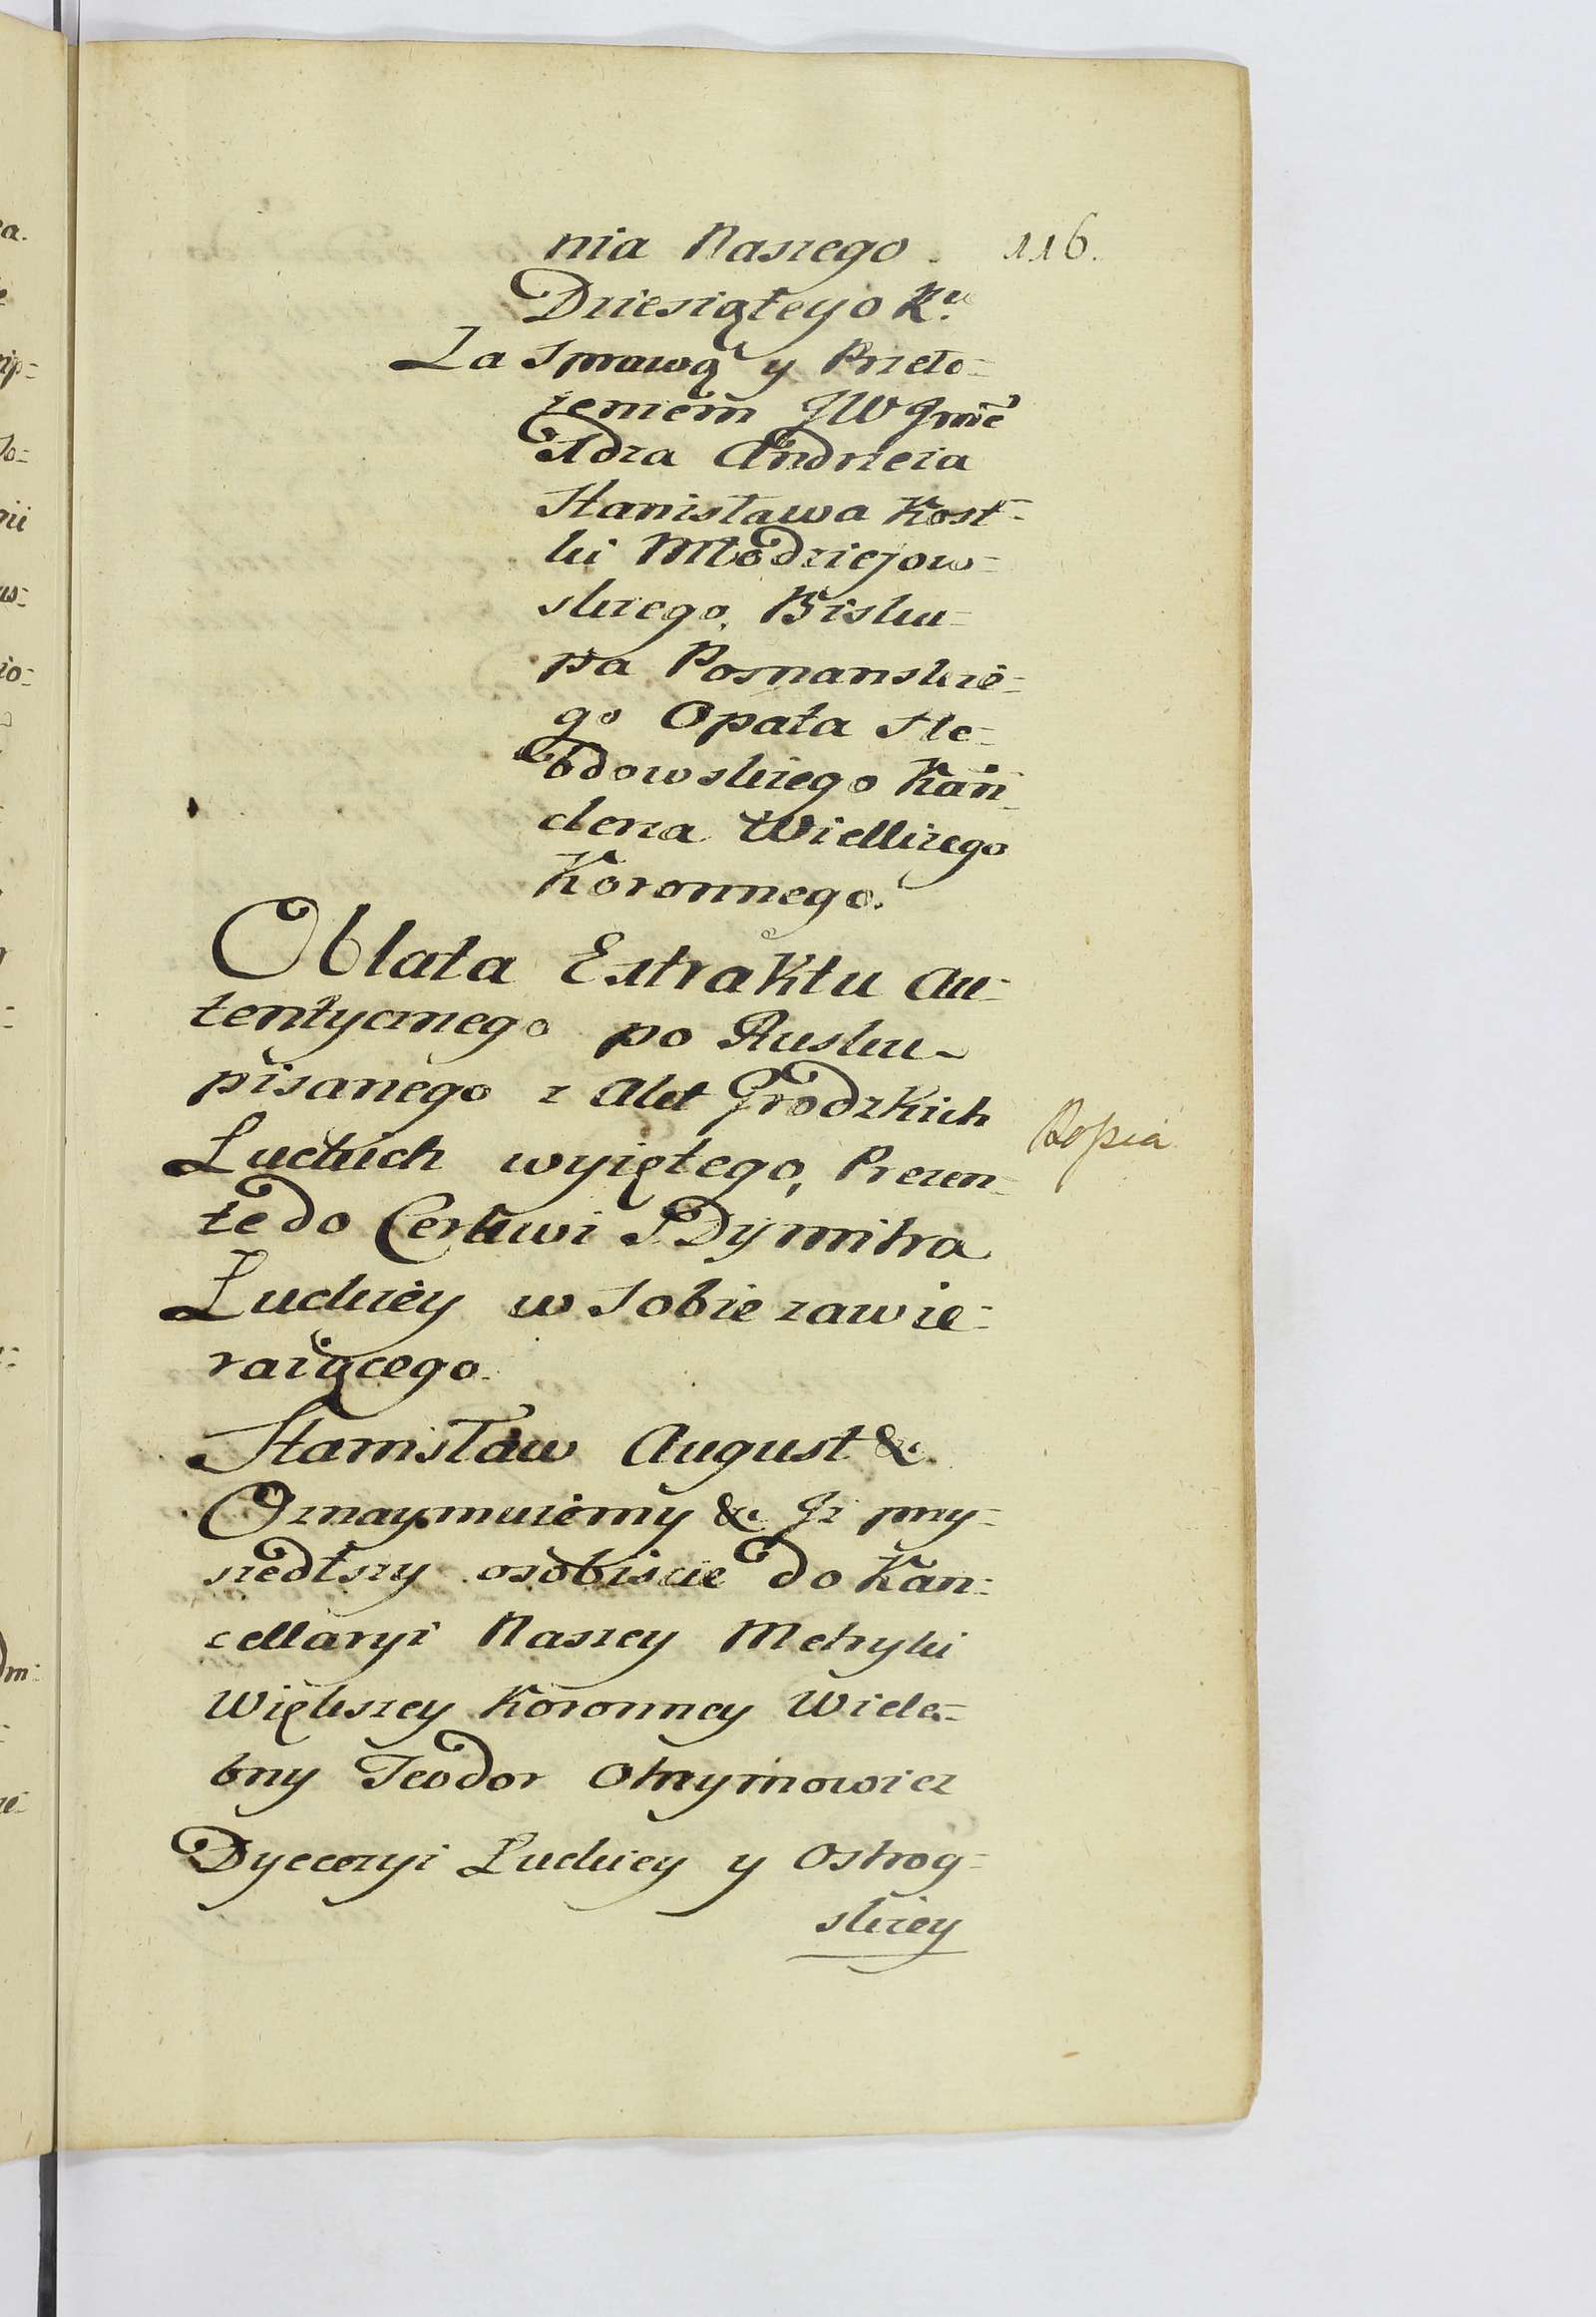 nia Naszego. 116.
Dziesiątego Ru.
Za Sprawą y Przeło=
żeniem JW Jmc
Xdza Andrzeia
Stanisława Kost=
ki Młodziejow=
skiego, Bisku=
pa Poznanskie=
go Opata He=
bdowskiego Kan=
clerza Wielkiego
Koronnego.
Oblata Extraktu Au=
tentycznego po Rusku
pisanego z Akt Grodzkich
Łuckich wyiętego, Prezen=
Kopia
tę do Cerkwi S Dymitra
Łuckiey w Sobie zawie=
raiącego.
Stanisław August &c
Oznaymuiemy &c Jż przy=
szedłszy osobiscie do Kan=
cellaryi Naszey Metryki
Większey Koronney Wiele=
bny Teodor Otrzymowicz
Dyecezyi Łuckiey y Ostrog=
skiey